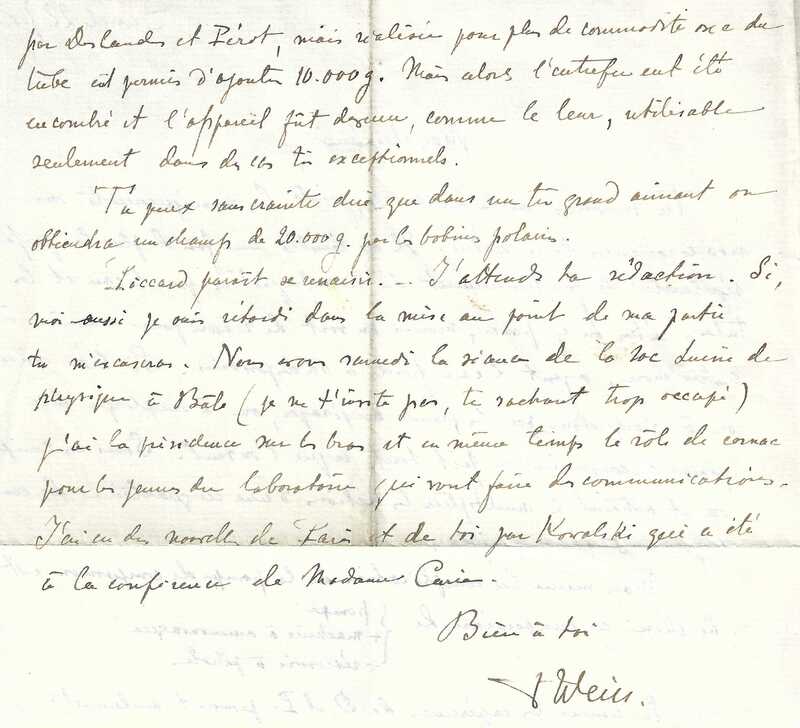 par Deslandres et Pérot, mais réalisée pour plus de commodité avec du
tube eut permis d'ajouter 10.000 g. Mais alors l'entrefer eut été
encombré et l'appareil fût devenu, comme le leur, utilisable
seulement dans des cas très exceptionnels.
Tu peux sans crainte dire que dans un très grand aimant on
obtiendra un champs de 20.000 g. par les bobines polaires.
Piccard paraît se ressaisir. – J'attends ta rédaction. Si,
moi aussi je suis retardé dans la mise au point de ma partie
tu m'excuseras. Nous avons samedi la séance de la Soc Suisse de
physique à Bâle (je ne t'invite pas, te sachant trop occupé)
j'ai la présidence sur les bras et en même temps le rôle de cornac
pour les jeunes du laboratoire qui vont faire des communications.
J'ai eu des nouvelles de Paris et de toi par Kowalski qui a été
à la conférence de Madame Curie.
Bien à toi
P Weiss.